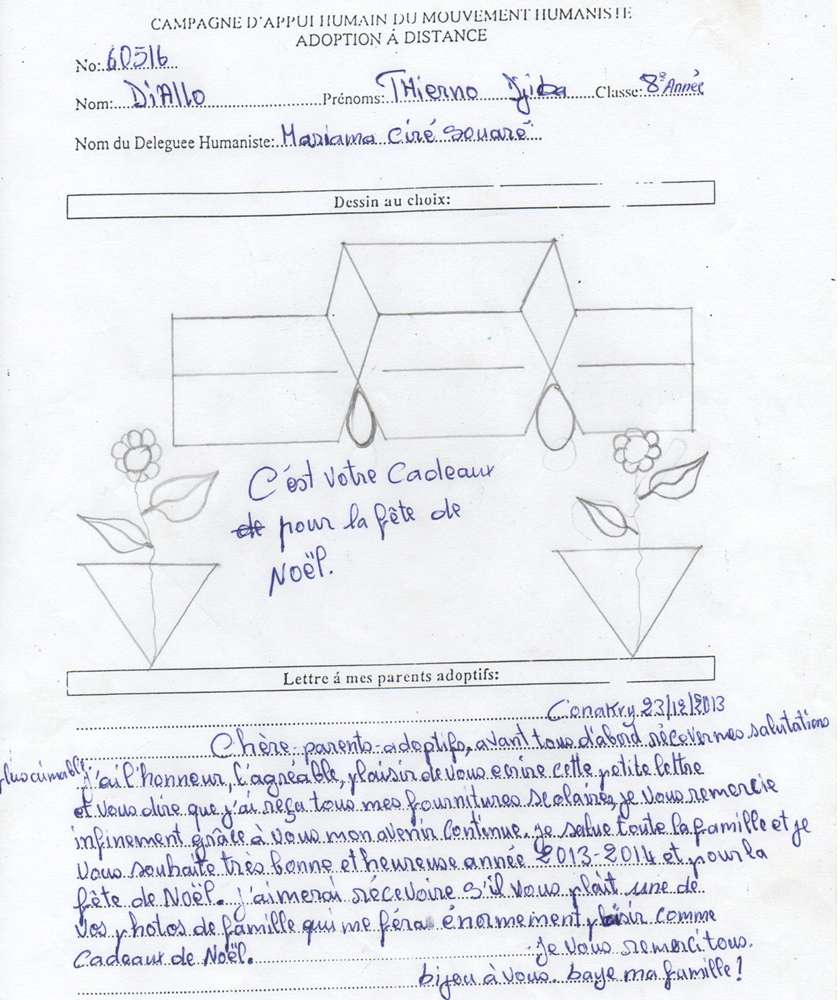 CAMPAGNE D'APPUI HUMAIN DU MOUVEMENT HUMANISTE
ADOPTION Á DISTANCE
No: 60516
Nom: DiAllo Prénoms: THierno Djiba Classe: 8e Année
Nom du Deleguee Humaniste: Mariama Ciré Souaré
Dessin au choix:
C'est votre Cadeaux
de pour la fête de
NOËl.
Lettre á mes parents adoptifs:
Conakry 23/12/2013
Chère parents-adoptifs, avant tous d'abord récever mes salutations
j'ai l'honneur, l'agréable, plaisir de vous ecrire cette petite lettre
et vous dire que j'ai reça tous mes fournitures scolaires, je vous remercie
infinement grâce à vous mon avenir continue. je salue toute la famille et je
vous souhaite très bonne et heureuse année 2013-2014 et pour la
fête de Noël. j'aimerai récevoire s'il vous plait une de
vos photos de famille qui me féra énormement plaisir comme
Cadeaux de Noël. je vous remerci tous.
bijou à vous. baye ma famille!